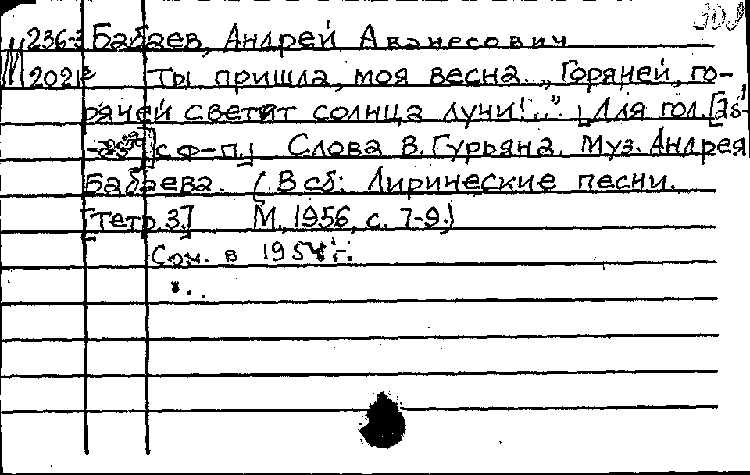 309
236-3 Бабаев, Андрей Аванесович
2021 Ты пришла, моя весна. „Горячей, го-
рячей светят солнца лучи!..“ [Для гол.
с ф-п.] Слова В. Гурьяна. Муз. Андрея
Бабаева. (В сб: Лирические песни.
[Тетр. 3.] М., 1956, с. 7-9.)
Соч. в 1954 г.